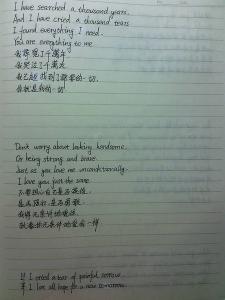 I have searched a thousand years.
And I have cried a thousand tears
I found everything I need.
You are everything to me
我寻觅了千万年
我哭泣了千万次
我已经找到了需要的一切.
你就是我的一切
Don't worry about looking handsome.
Or being strong and brave.
Just as you love me unconditionally.
I love you just the same.
不要担心自己是否英俊.
是否强壮,是否勇敢.
我将无条件的爱你.
就像你无条件的爱我一样
If I cried a tear of painful sorrow
If I lose all hope for a new tomorrow.